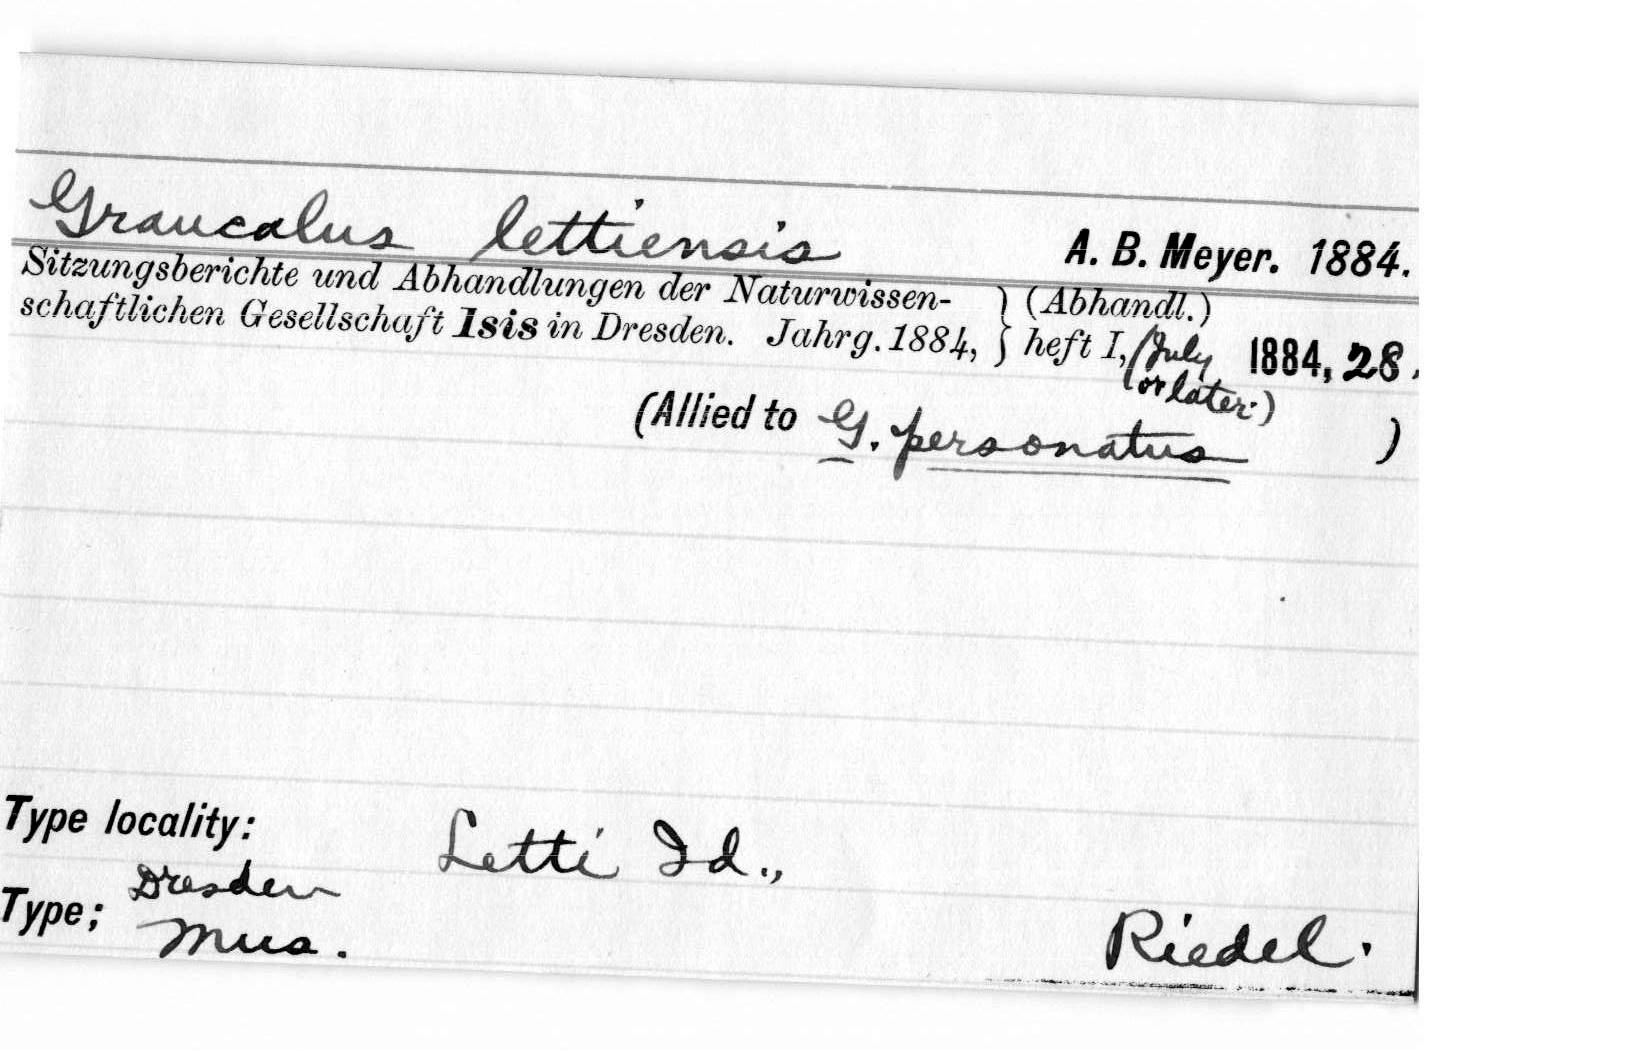 Graucalus lettiensis A. B. Meyer. 1884.
Sitzungsberichte und Abhandlungen der Naturwissen- } (Abhandl.)
schaftlichen Gesellschaft Isis in Dresden. Jahrg. 1884, } heft I, (July 1884, 28.
or later.)
(Allied to G. personatus )
Type locality: Letti Id.,
Dresden
Type; Mus. Riedel.